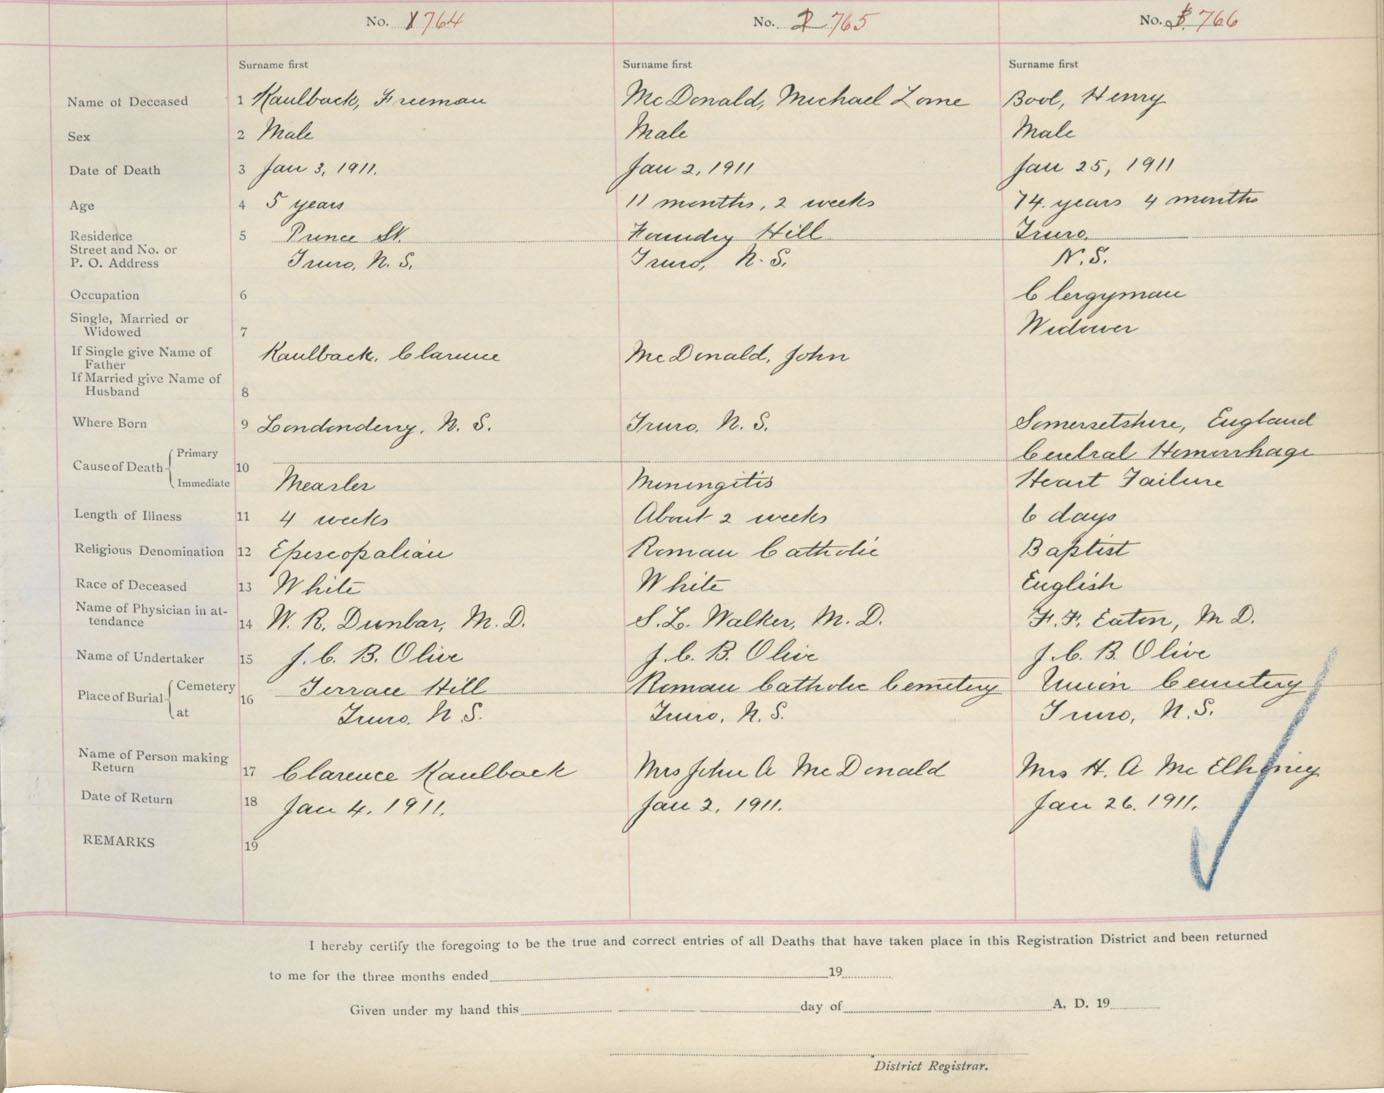 No. 1 764 No. 2 765 No. 3 766
Surname first Surname first Surname first
Name of Deceased 1 Kaulback, Freeman McDonald, Michael Lorne Bool, Henry
Sex 2 Male Male Male
Date of Death 3 Jan 3, 1911. Jan 2, 1911 Jan 25, 1911
Age 4 5 years 11 months, 2 weeks 74 years 4 months
Residence 5 Prince St. Foundry Hill Truro,
Street and No. or
P. O. Address Truro, N. S. Truro, N. S. N. S.
Occupation 6 Clergyman
Single, Married or
Widowed 7 Widower
If Single give Name of Kaulback, Clarence McDonald, John
Father
If Married give Name of
Husband 8
Where Born 9 Londonderry, N. S. Truro, N. S. Somersetshire, England
Cause of Death Primary 10 Cerebral Hemorrhage
Immediate Measles Meningitis Heart Failure
Length of Illness 11 4 weeks About 2 weeks 6 days
Religious Denomination 12 Episcopalian Roman Catholic Baptist
Race of Deceased 13 White White English
Name of Physician in at-
tendance 14 W. R. Dunbar, M. D. S. L. Walker, M. D. F. F. Eaton, M D.
Name of Undertaker 15 J. C. B. Olive J. C. B. Olive J. C. B. Olive
Place of Burial Cemetery 16 Terrace Hill Roman Catholic Cemetery Union Cemetery
at Truro, N S. Truro, N. S. Truro, N. S.
Name of Person making
Return 17 Clarence Kaulback Mrs John A McDonald Mrs H. A McElheney
Date of Return 18 Jan 4, 1911. Jan 2, 1911. Jan 26, 1911.
REMARKS 19
I hereby certify the foregoing to be the true and correct entries of all Deaths that have taken place in this Registration District and been returned
to me for the three months ended 19
Given under my hand this day of A. D. 19
District Registrar.